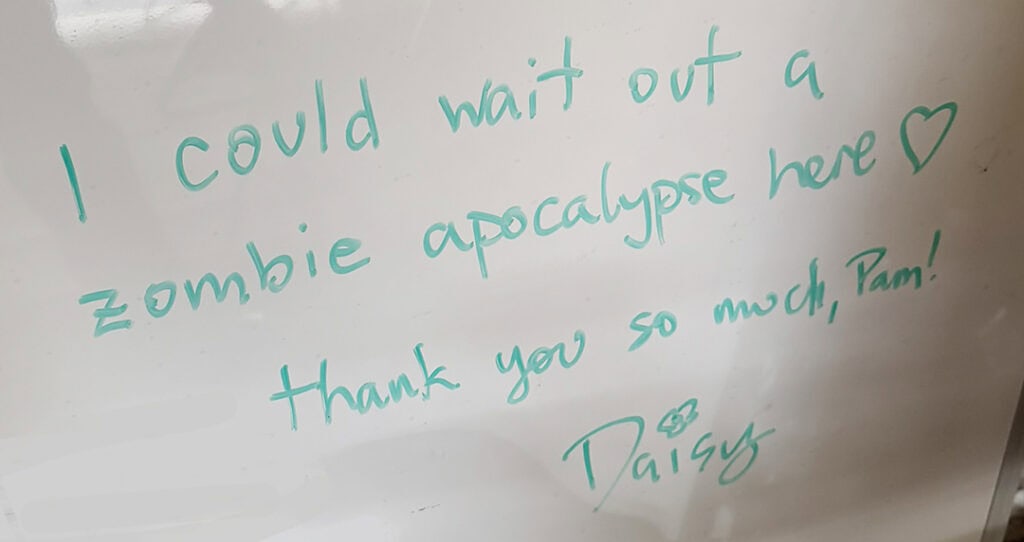 I could wait out a
zombie apocalypse here ♡
thank you so much, Pam!
Daisy